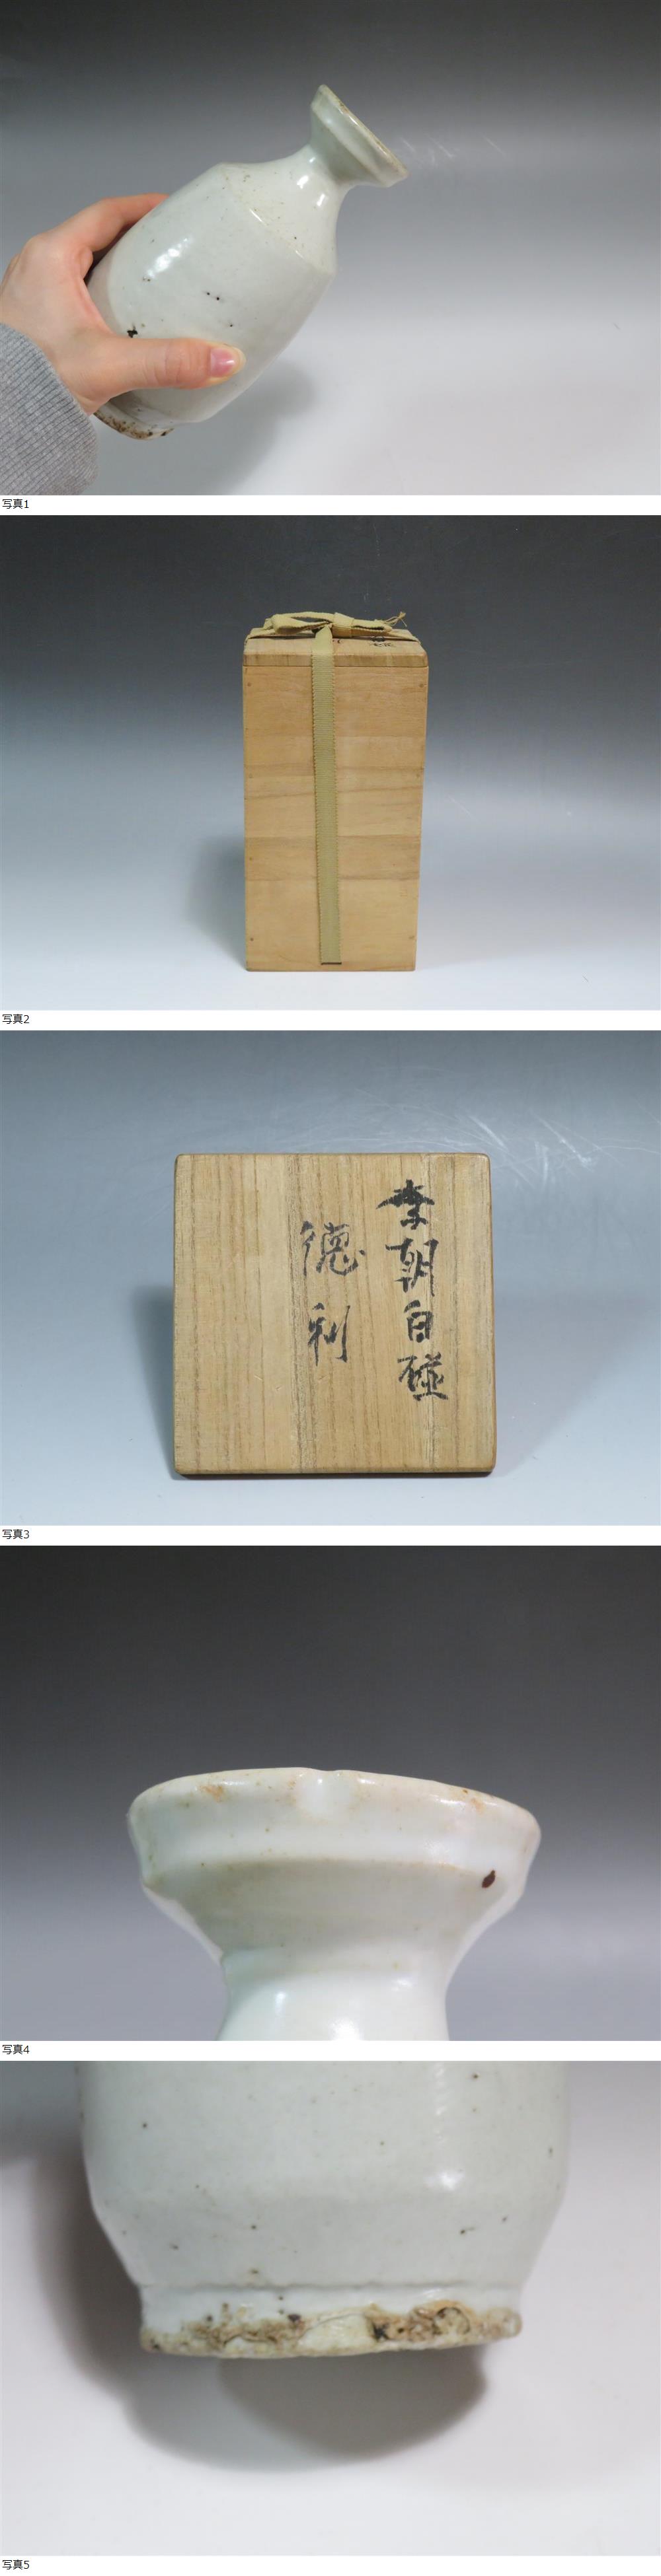 写真1
写真2
李朝白磁
徳利
写真3
写真4
写真5